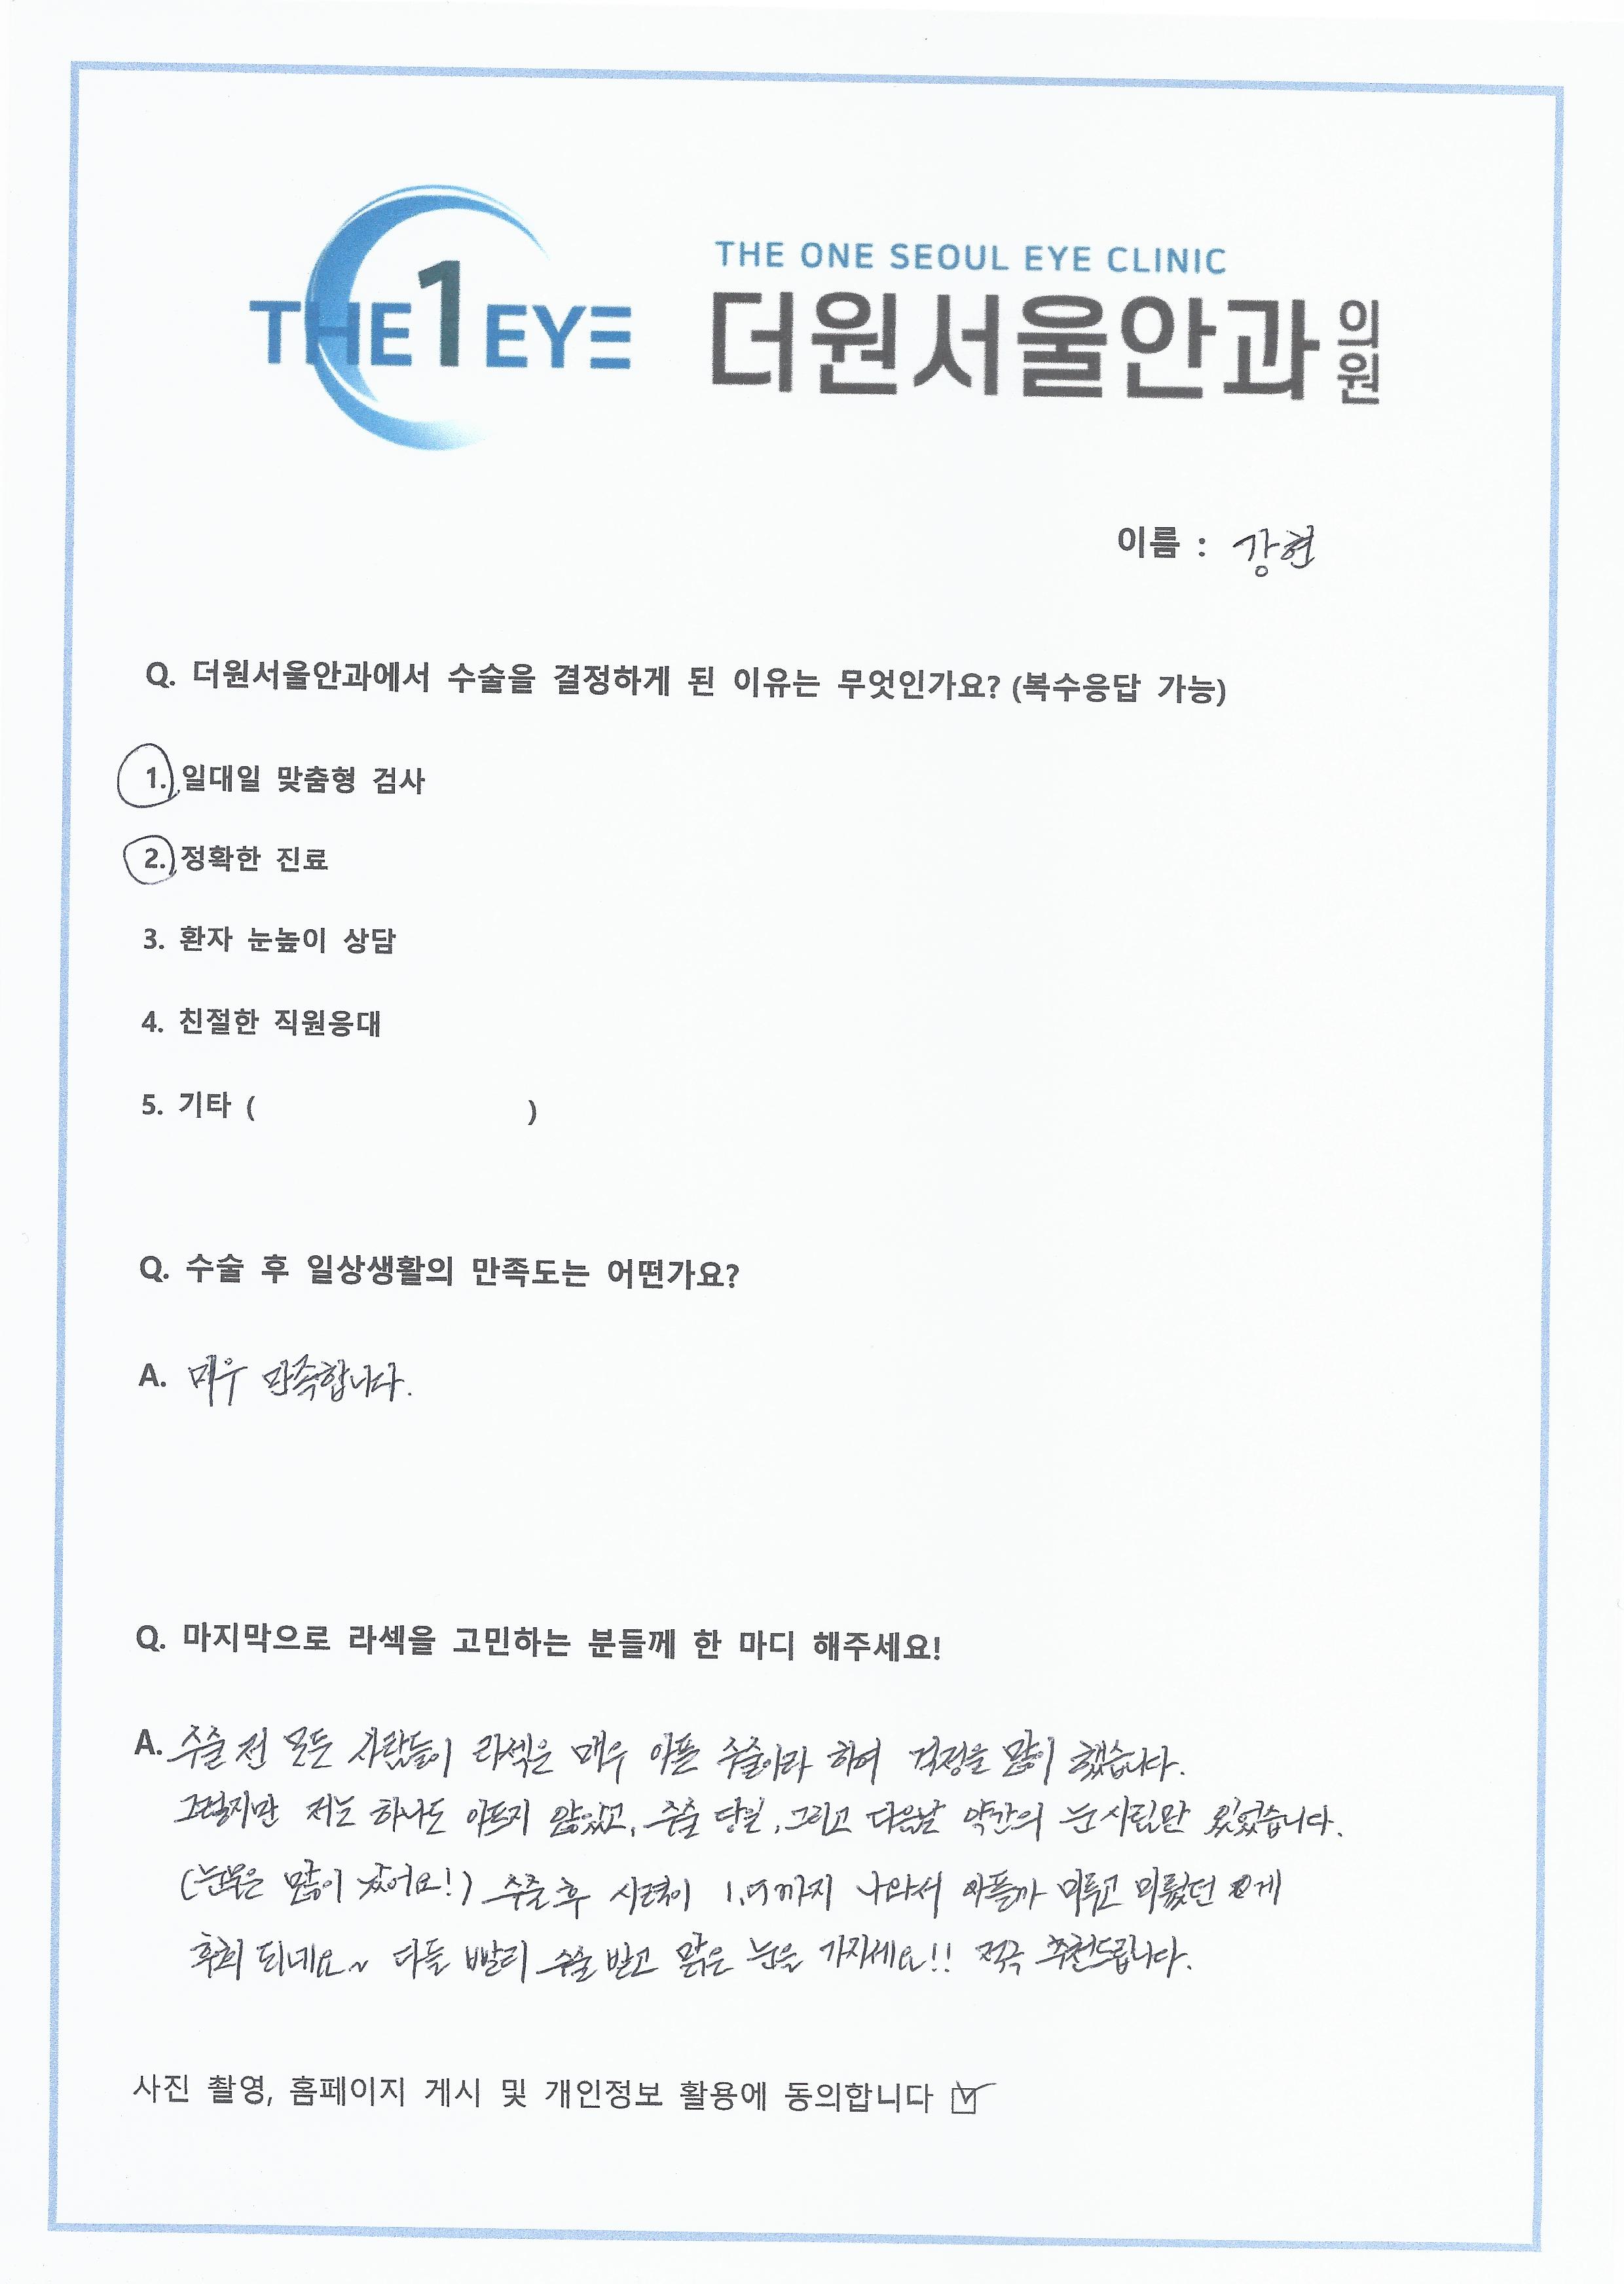 THE 1 EYE
THE ONE SEOUL EYE CLINIC
더원서울안과의원
이름 : 강현
Q. 더원서울안과에서 수술을 결정하게 된 이유는 무엇인가요? (복수응답 가능)
1. 일대일 맞춤형 검사
2. 정확한 진료
3. 환자 눈높이 상담
4. 친절한 직원응대
5. 기타 ( )
Q. 수술 후 일상생활의 만족도는 어떤가요?
A. 매우 만족합니다.
Q. 마지막으로 라섹을 고민하는 분들께 한 마디 해주세요!
A. 수술 전 모든 사람들이 라섹은 매우 아픈 수술이라 하여 걱정을 많이 했습니다.
그렇지만 저는 하나도 아프지 않았고, 수술 당일, 그리고 다음날 약간의 눈시림만 있었습니다.
(눈물은 많이 났어요!) 수술 후 시력이 1.5까지 나와서 아플까 미루고 미뤘던 게
후회 되네요~ 다들 빨리 수술 받고 맑은 눈을 가지세요!! 적극 추천드립니다.
사진 촬영, 홈페이지 게시 및 개인정보 활용에 동의합니다 ☑